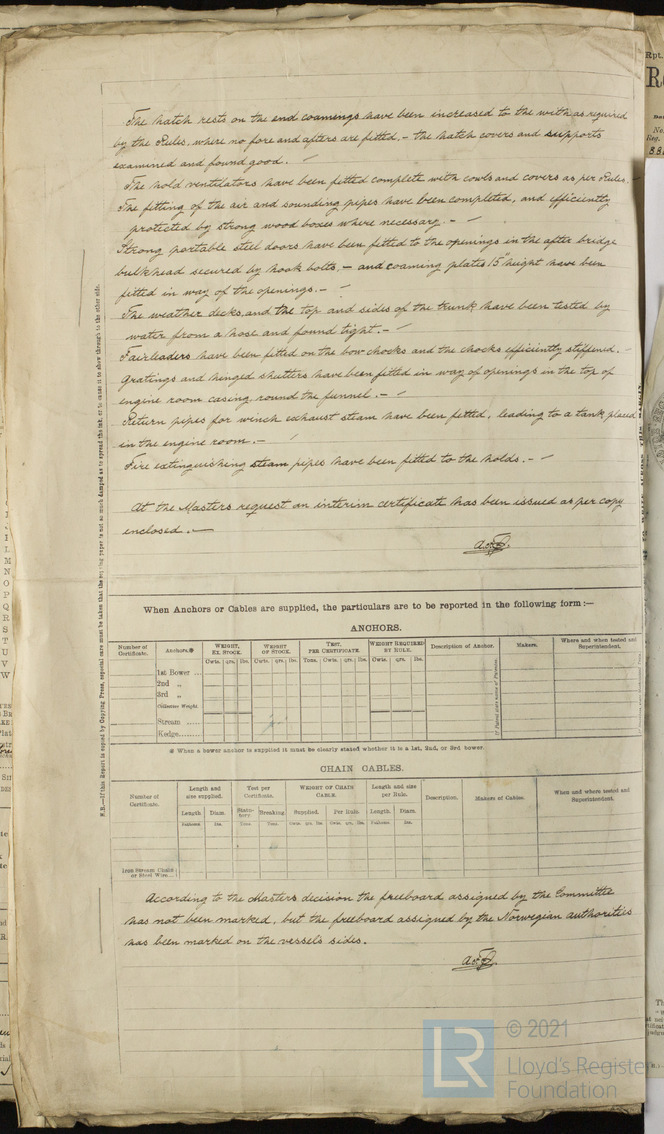 The hatch rests on the end coamings have been increased to the width as required
by the Rules, where no fore and afters are fitted, – the hatch covers and supports
examined and found good.
The hold ventilators have been fitted complete with cowls and covers as per Rules.
The fitting of the air and sounding pipes have been completed, and efficiently
protected by strong wood boxes where necessary. –
Strong portable steel doors have been fitted to the openings in the after bridge
bulkhead secured by hook bolts, – and coaming plates 15" height have been
fitted in way of the openings. –
The weather decks, and the top and sides of the trunk, have been tested by
water from a hose and found tight. –
Fairleaders have been fitted on the bow chocks and the chocks efficiently stiffened.
Gratings and hinged shutters have been fitted in way of openings in the top of
engine room casing round the funnel. –
Return pipes for winch exhaust steam have been fitted, leading to a tank placed
in the engine room. –
Fire extinguishing steam pipes have been fitted to the holds. –
At the Masters request an interim certificate has been issued as per copy
enclosed. –
When Anchors or Cables are supplied, the particulars are to be reported in the following form :—
ANCHORS.
Number of Certificate. Anchors.* WEIGHT, EX. STOCK. WEIGHT OF STOCK. TEST, PER CERTIFICATE. WEIGHT REQUIRED BY RULE. Description of Anchor. Makers. Where and when tested and Superintendent.
Cwts. qrs. lbs. Cwts. qrs. lbs. Tons. Cwts. qrs. lbs. Cwts. qrs. lbs.
1st Bower ...
2nd „
3rd „
Collective Weight
Stream .....
Kedge........
* When a bower anchor is supplied it must be clearly stated whether it is a 1st, 2nd, or 3rd bower.
CHAIN CABLES.
Number of Certificate. Length and size supplied. Test per Certificate. WEIGHT OF CHAIN CABLE. Length and size per Rule. Description. Makers of Cables. When and where tested and Superintendent.
Length Diam. Statutory. Breaking Supplied. Per Rule. Length Diam.
Fathoms Ins. Tons. Tons. Cwts. qrs. lbs. Cwts. qrs. lbs. Fathoms. Ins.
Iron Stream Chain
or Steel Wire...
According to the Masters decision the freeboard assigned by the Committee
has not been marked, but the freeboard assigned by the Norwegian authorities
has been marked on the vessel's sides.
LR © 2021
Lloyd's Register
Foundation